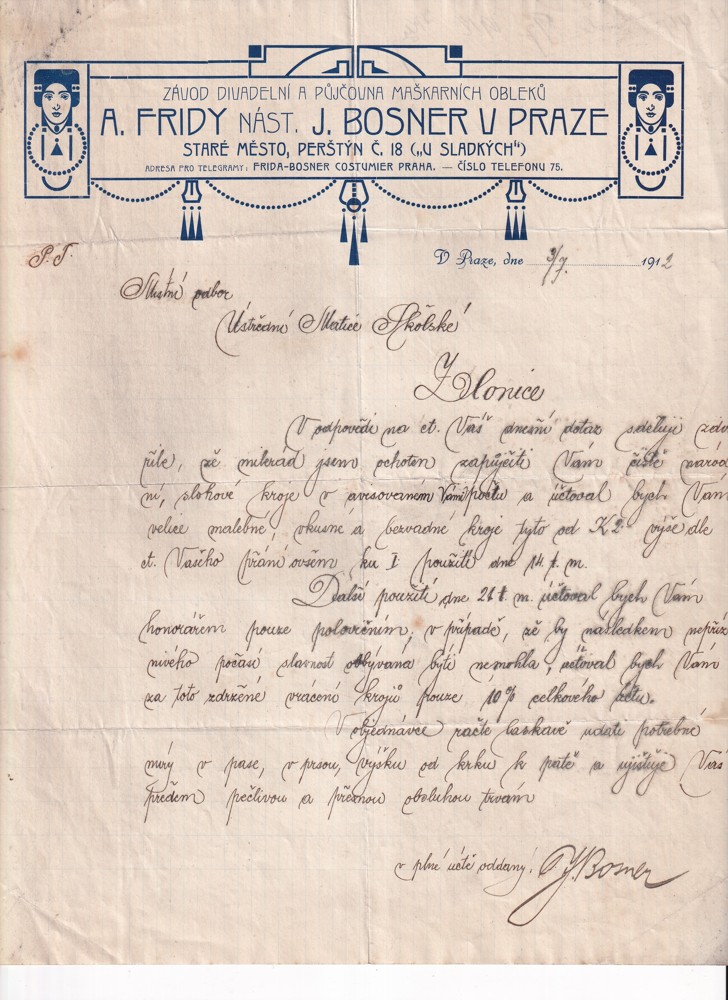 ZÁVOD DIVADELNÍ A PŮJČOVNA MAŠKARNÍCH OBLEKŮ
A. FRIDY NÁST. J. BOSNER V PRAZE
STARÉ MĚSTO, PERŠTÝN Č. 18 („U SLADKÝCH“)
ADRESA PRO TELEGRAMY: FRIDA-BOSNER COSTUMIER PRAHA. — ČÍSLO TELEFONU 75.
P. T. V Praze, dne 3/7. 1912
Místní odbor
Ústřední Matice Školské
Zlonice
V odpovědi na ct. Váš dnešní dotaz sděluji zdvo
řile, že milerád jsem ochoten zapůjčiti Vám čistě národ
ní, slohové kroje v avisovaném Vámi počtu a účtoval bych Vám
velice malebné, vkusné a bezvadné kroje tyto od K 2 výše dle
ct. Vašeho přání ovšem ku I. použití dne 14. t. m.
Další použití, dne 21 t. m. účtoval bych Vám
honorářem pouze polovičním; v případě, že by následkem nepříz
nivého počasí slavnost odbývána býti nemohla, účtoval bych Vám
za toto zdržené vrácení krojů pouze 10% celkového účtu.
V objednávce račte laskavě udati potřebné
míry v pase, v prsou, výšku od krku k patě a ujišťuje Vás
předem pečlivou a přesnou obsluhou trvám
v plné úctě oddaný: J. Bosner